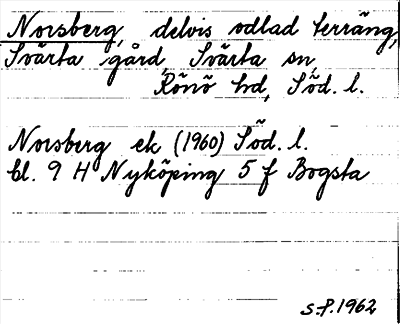 Norsberg, delvis odlad terräng,
Svärta gård, Svärta sn,
Rönö hd, Söd. l.
Norsberg ek (1960) Söd. l.
bl. 9 H Nyköping 5 f Bogsta
S.P. 1962